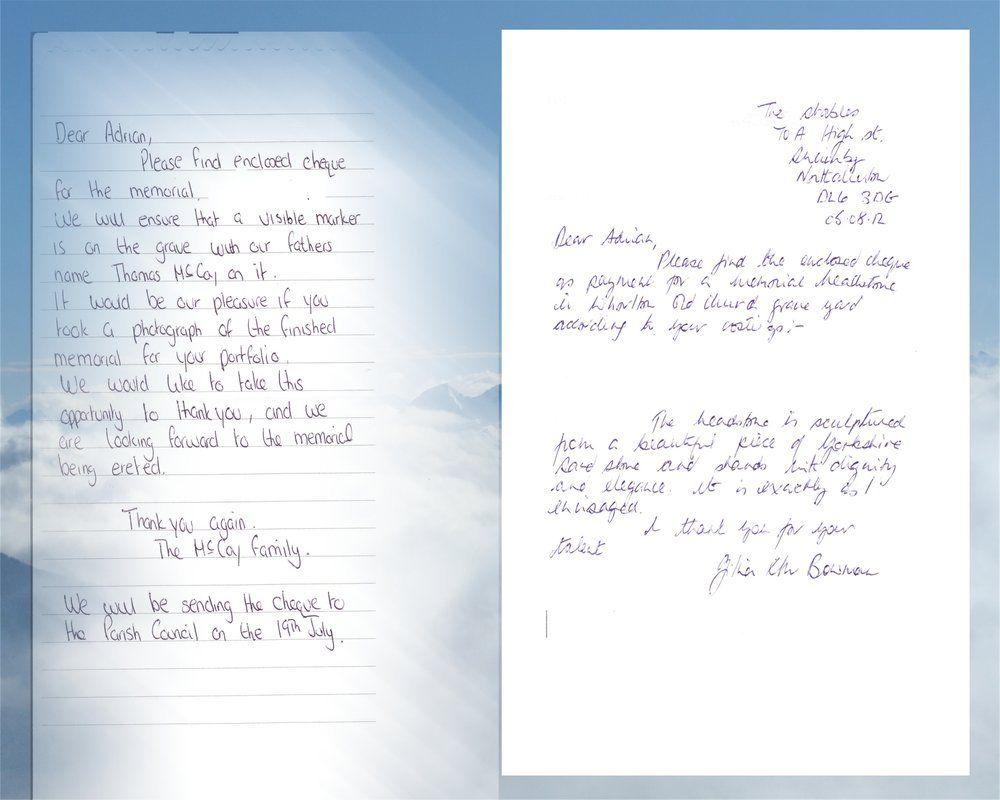 Dear Adrian,
Please find enclosed cheque
for the memorial.
We will ensure that a visible marker
is on the grave with our fathers
name Thomas McCoy on it.
It would be our pleasure if you
took a photograph of the finished
memorial for your portfolio.
We would like to take this
opportunity to thank you, and we
are looking forward to the memorial
being ereted.
Thank you again.
The McCoy family.
We will be sending the cheque to
the Parish Council on the 19th July.
The stables
High st.
Northallerton
DL6 3DG
05.08.12
Dear Adrian,
Please find the enclosed cheque
as payment for a memorial headstone
in Whorlton Old church grave yard
according to your costings:-
The headstone is sculptured
from a beautiful piece of Yorkshire
sand stone and stands with dignity
and elegance. It is exactly as I
envisaged.
I thank you for your
talent
Bowman